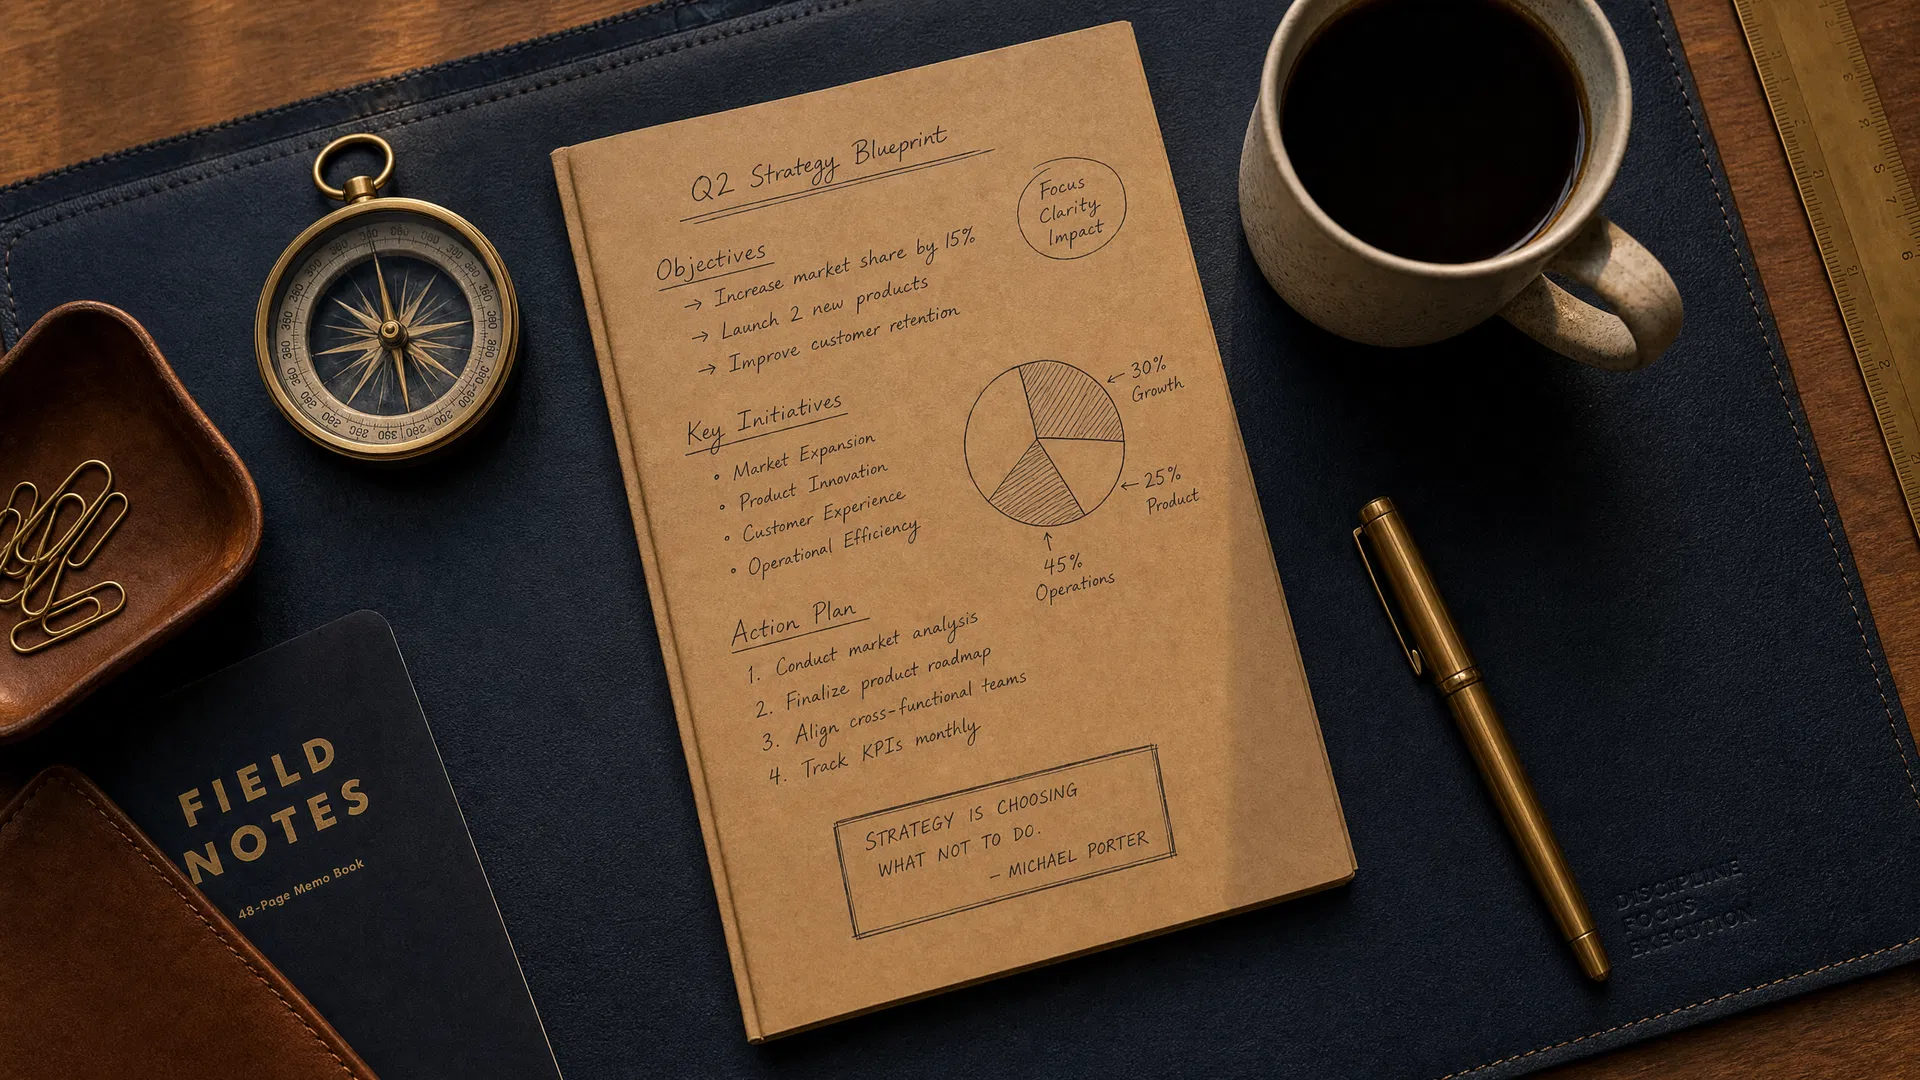 Q2 Strategy Blueprint
Focus
Clarity
Impact
Objectives
→ Increase market share by 15%
→ Launch 2 new products
→ Improve customer retention
Key Initiatives
◦ Market Expansion
◦ Product Innovation
◦ Customer Experience
◦ Operational Efficiency
← 30%
Growth
← 25%
Product
↑
45%
Operations
Action Plan
1. Conduct market analysis
2. Finalize product roadmap
3. Align cross-functional teams
4. Track KPIs monthly
STRATEGY IS CHOOSING
WHAT NOT TO DO.
– MICHAEL PORTER
FIELD
NOTES
48-Page Memo Book
DISCIPLINE
FOCUS
EXECUTION